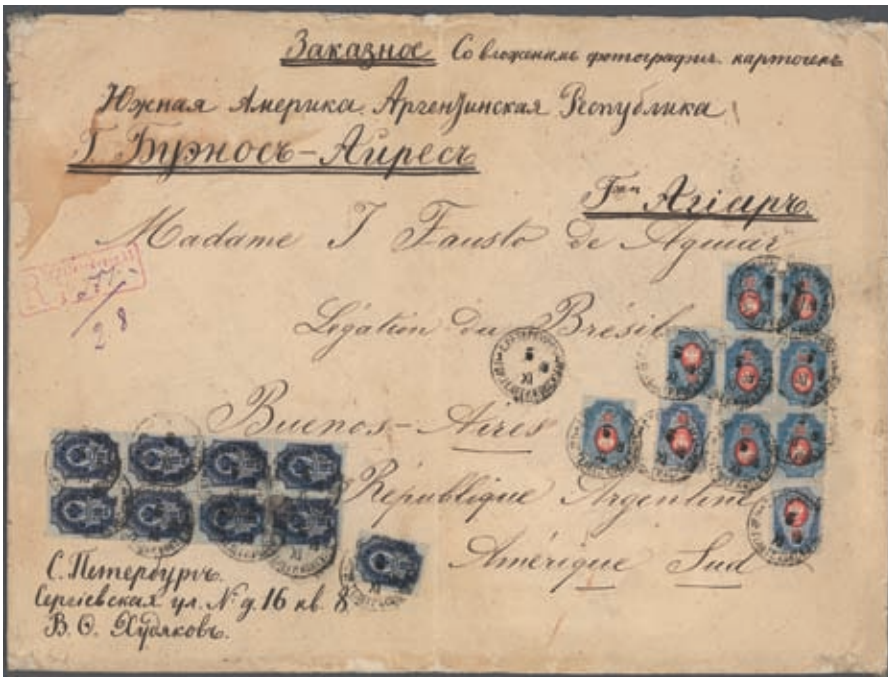 Заказное Со вложениемъ фотографич. карточекъ
Южная Америка. Аргентинская Республика
Г. Буэносъ-Айресъ
Агіаръ.
Madame J Fausto de Aguiar
Légation du Brésil
Buenos-Aires
République Argentine
Amérique Sud
R
28
С. Петербургъ.
Сергіевская ул. № д. 16 кв. 8
В. О. Худяковъ.